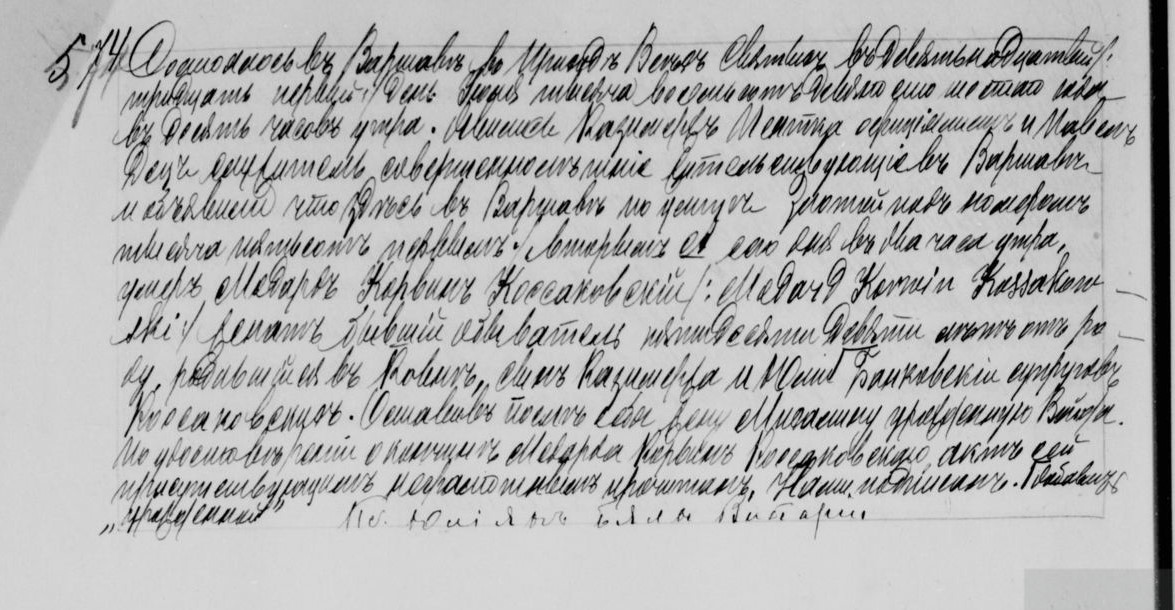 574. Состоялось въ Варшавѣ въ Приходѣ Всѣхъ Святыхъ въ девятнадцатый /:
тридцать первый:/ день Июля тысяча восемьсотъ девяносто шестаго года
въ десять часовъ утра. Явились Казимержъ официялистъ и Павелъ
совершеннолѣтніе жительствующіе въ Варшавѣ
и объявили что здѣсь въ Варшавѣ по улицѣ Злотой подъ номеромъ
тысяча пятьсотъ первымъ вторымъ сего дня въ два часа утра,
умеръ Медардъ Корвинъ Коссаковскій /: Medard Korwin Kossakow-
ski:/ женатъ бывшій обыватель пятидесяти девяти лѣтъ отъ ро-
ду, родившійся въ Ковнѣ, сынъ Казимержа и Юліи Банковскій супруговъ
Коссаковскихъ. Оставивъ послѣ себя жену урожденную
По удостовѣреніи о кончинѣ Медарда Корвинъ Коссаковскаго актъ сей
присутствующимъ неграмотнымъ прочитанъ, Нами подписанъ.
„урожденную“